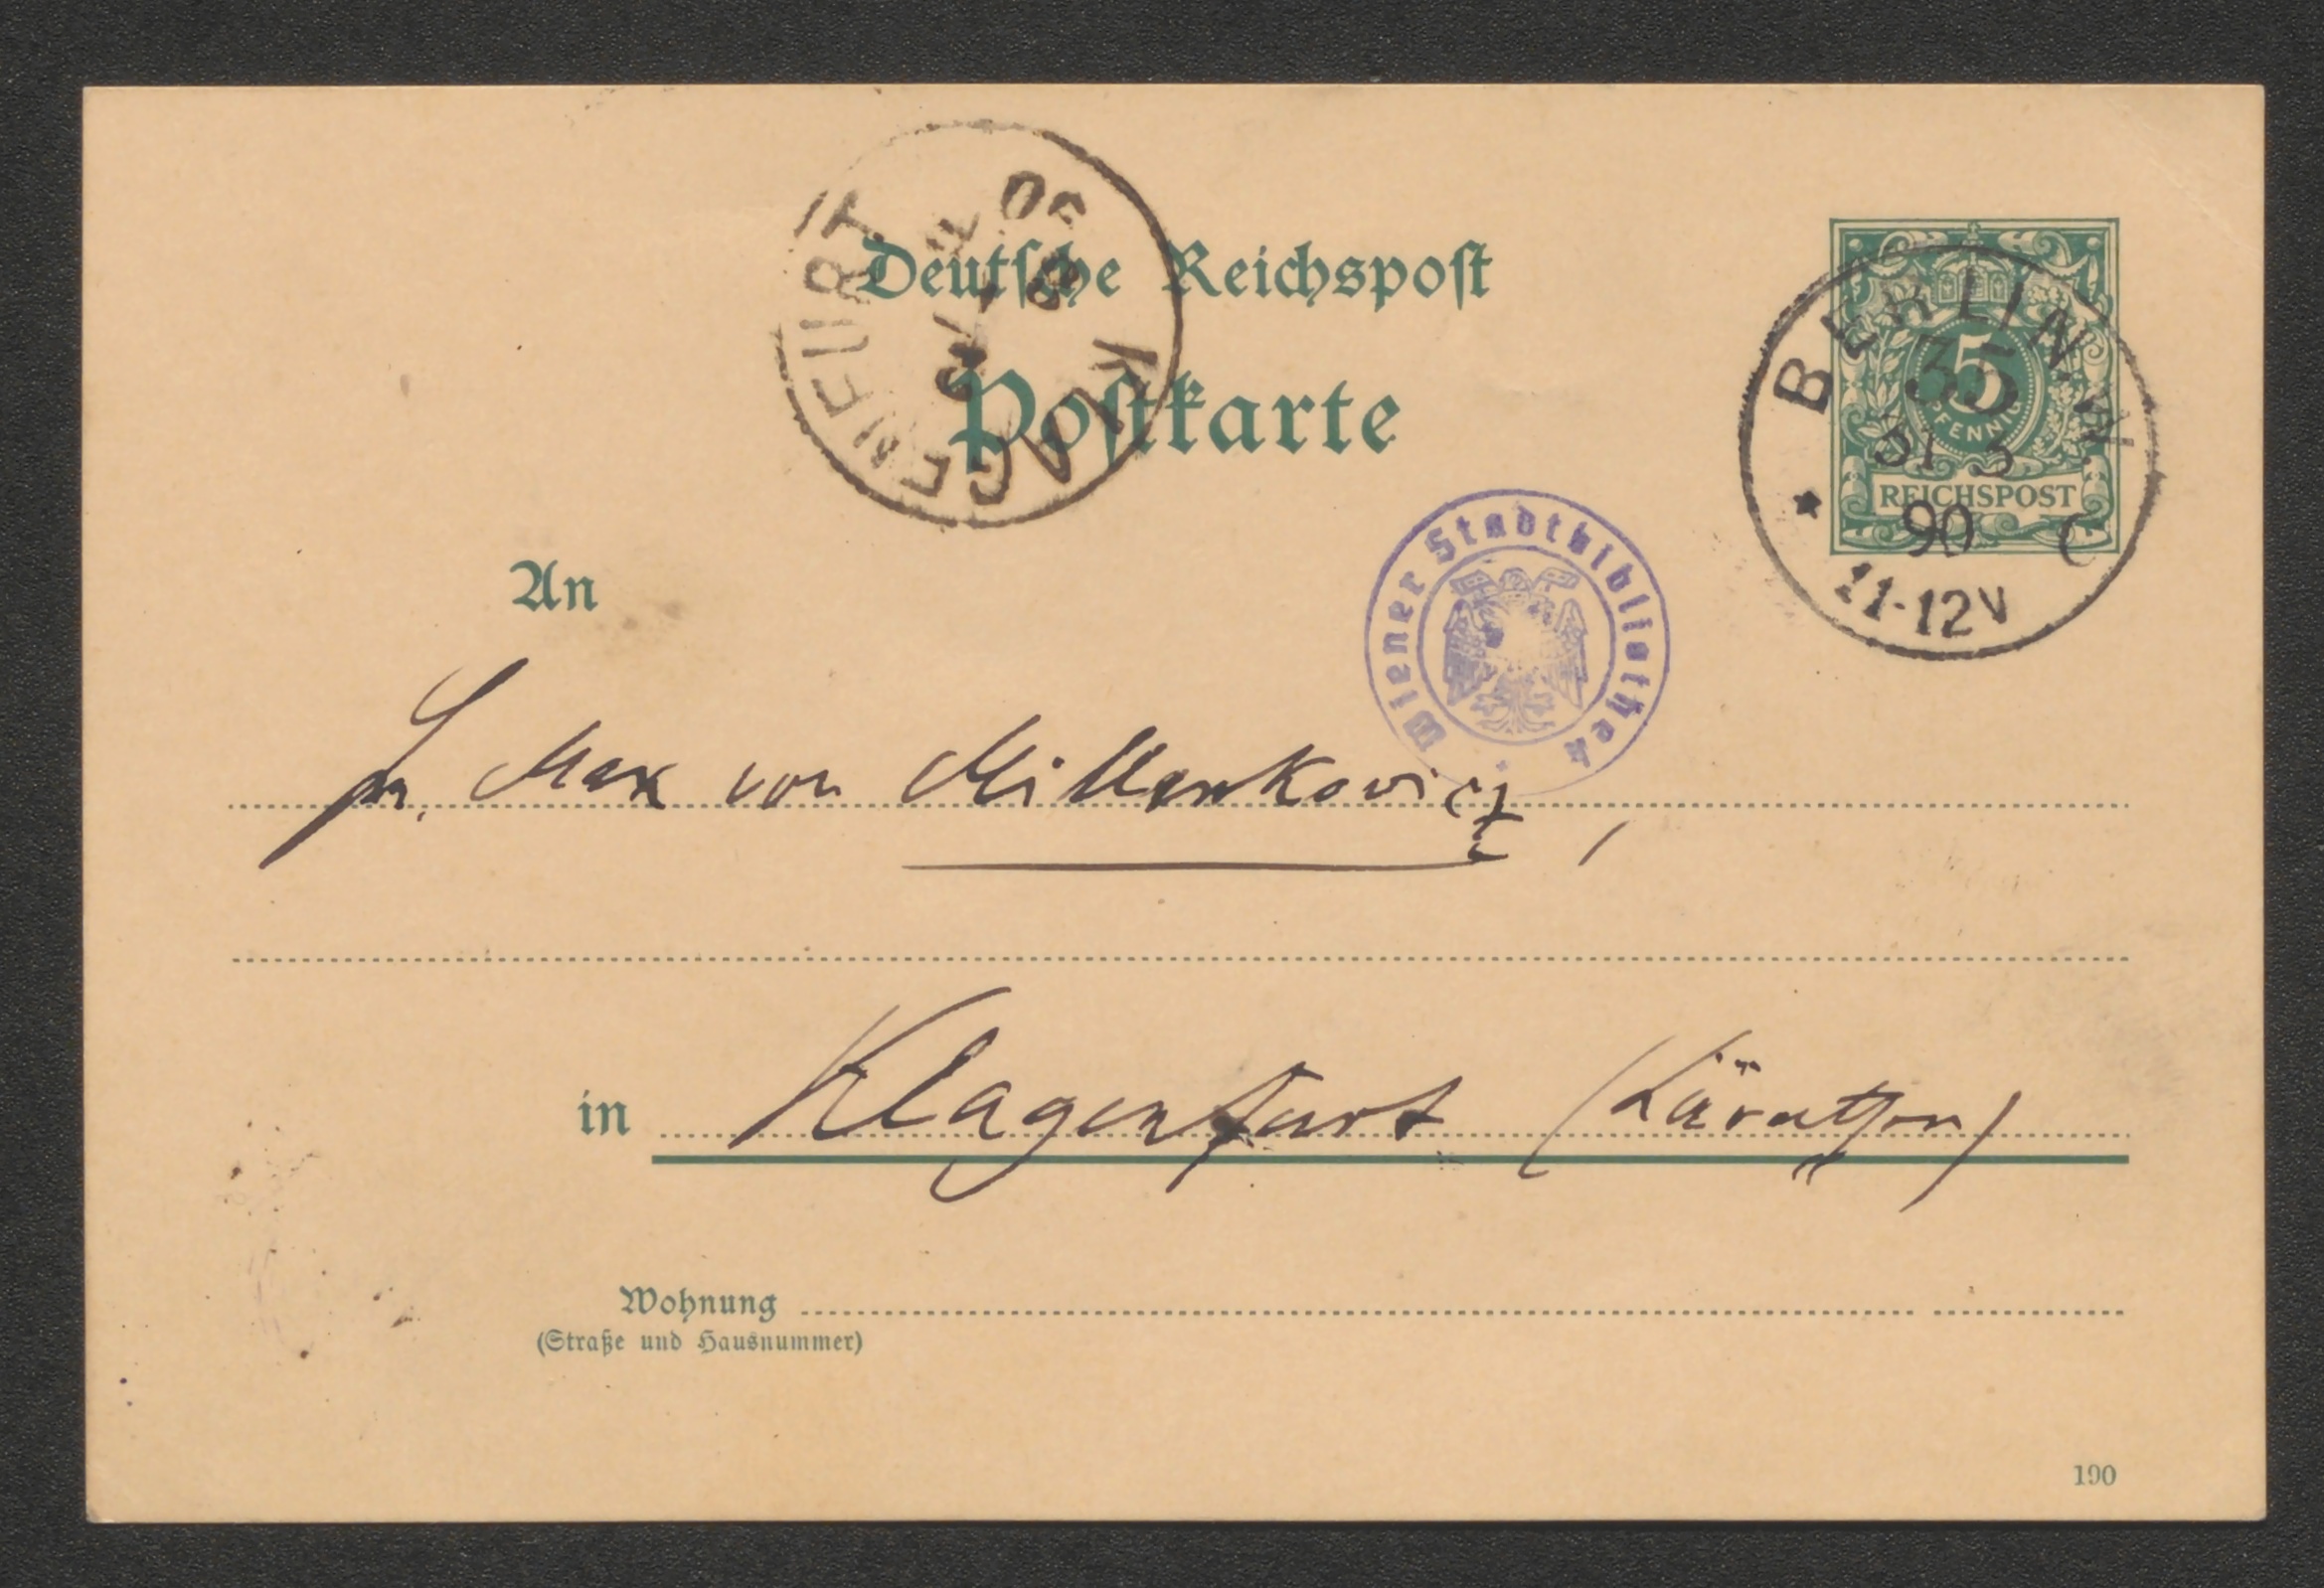 Deutsche Reichspost
Postkarte
KLAGENFURT
90
BERLIN. W.
35
31 3
90 C
11-12V
5
PFENNIG
REICHSPOST
Wiener Stadtbibliothek
An
H. Max von Millenkovicz,
in Klagenfurt (Kärnthen)
Wohnung
(Straße und Hausnummer)
190